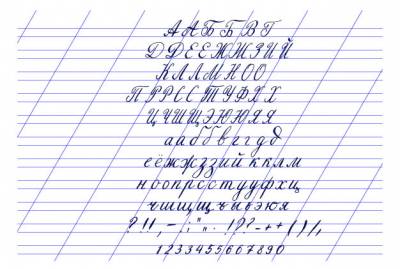 А А Б Б В Г
Д Д Е Е Ж Ж З И Й
К Л Л М Н О О
П Р Р С С Т У Ф Х Х
Ц Ч Ш Щ Э Ю Ю Я Я
а а б б в г г д д
е ё ж з з и й к к л м
н о о п р с с т у у ф х ц
ч ш щ щ ъ ы ь э ю я
1 2 3 3 4 5 5 6 0 7 8 9 0